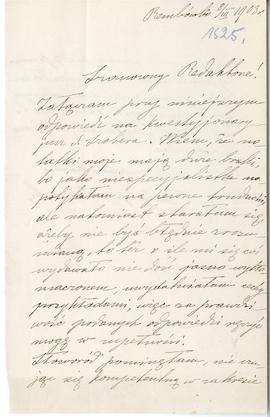 Rembówko 9/III 1903 r.
1525.
Szanowny Redaktorze!
Załączam przy niniejszym
odpowiedzi na kwestyjonary
jusz d. Szobera. Wiem, że no
tatki moje mają duże braki,
bo jako niespecyjalistka na
potykałam na pewne trudności,
ale natomiast starałam się,
ażeby nie być błędnie zrozu
mianą, to też o ile mi się coś
wydawało nie dość jasno wytłu
maczonem, uwydatniałam cechy
przykładami, więc za prawdzi
wość podanych odpowiedzi ręczyć
mogę w zupełności.
Słoworód pominęłam, nie czu
jąc się kompetentną w zakresie